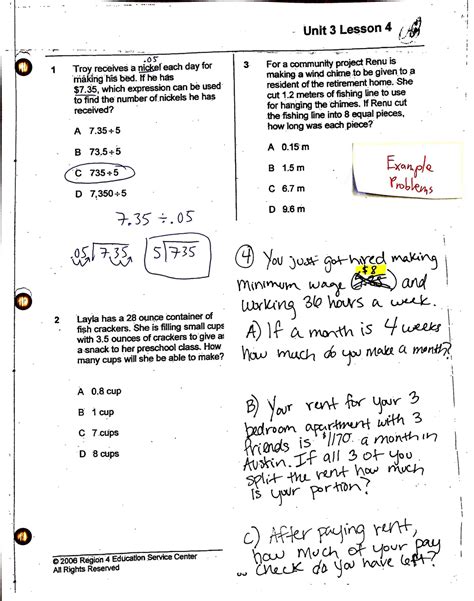 Unit 3 Lesson 4
.05
1 Troy receives a nickel each day for
making his bed. If he has
$7.35, which expression can be used
to find the number of nickels he has
received?
A 7.35 ÷ 5
B 73.5 ÷ 5
C 735 ÷ 5
D 7,350 ÷ 5
7.35 ÷ .05
.05 7.35 5 735
2 Layla has a 28 ounce container of
fish crackers. She is filling small cups
with 3.5 ounces of crackers to give as
a snack to her preschool class. How
many cups will she be able to make?
A 0.8 cup
B 1 cup
C 7 cups
D 8 cups
© 2006 Region 4 Education Service Center
All Rights Reserved
3 For a community project Renu is
making a wind chime to be given to a
resident of the retirement home. She
cut 1.2 meters of fishing line to use
for hanging the chimes. If Renu cut
the fishing line into 8 equal pieces,
how long was each piece?
A 0.15 m
B 1.5 m
C 6.7 m
D 9.6 m
Example
Problems
4 You just got hired making
$8
minimum wage ( ) and
working 36 hours a week.
A) If a month is 4 weeks
how much do you make a month?
B) Your rent for your 3
bedroom apartment with 3
friends is $1170 a month in
Austin. If all 3 of you
split the rent how much
is your portion?
C) After paying rent,
how much of your pay
check do you have left?